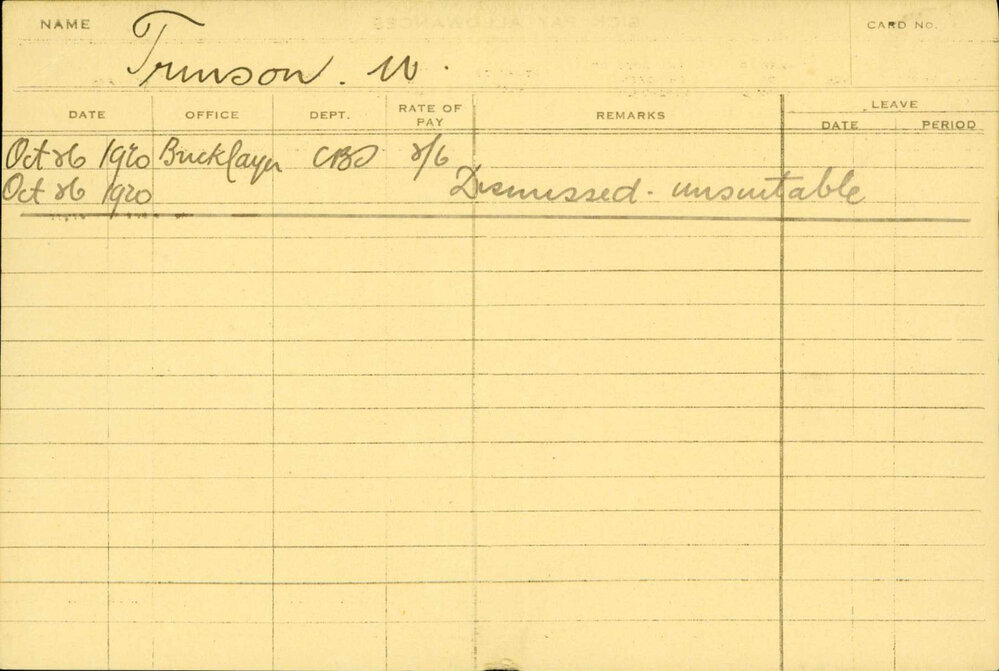 NAME
CARD NO.
Trunson. W.
DATE OFFICE DEPT. RATE OF PAY REMARKS LEAVE
DATE PERIOD
Oct 26 1920 Bricklayer CBD 2/6
Oct 26 1920 Dismissed - unsuitable